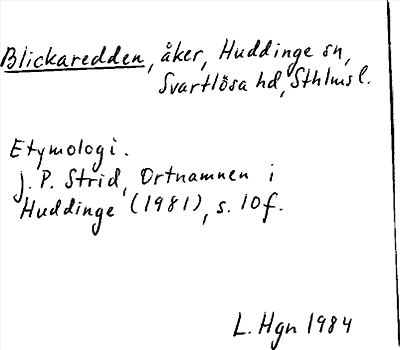 Blickaredden, åker, Huddinge sn,
Svartlösa hd, Sthlms l.
Etymologi.
J. P. Strid, Ortnamnen i
Huddinge (1981), s. 10f.
L. Hgn 1984